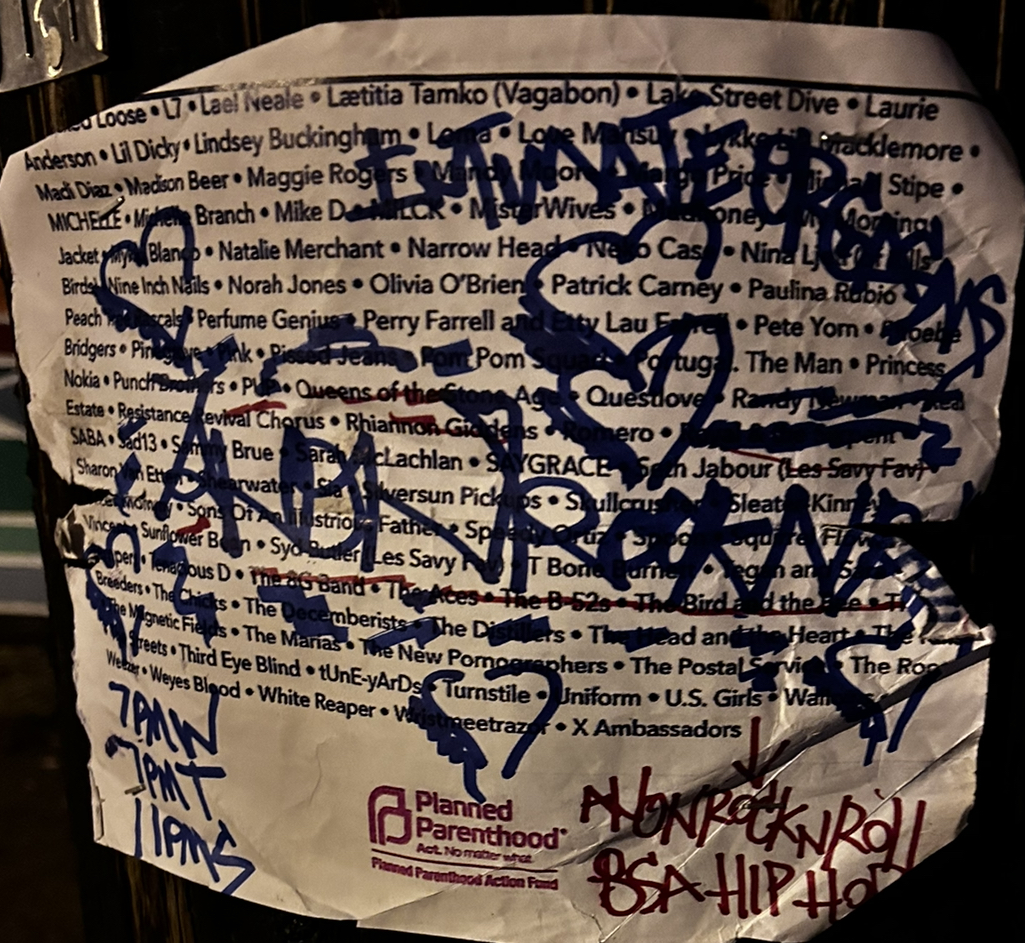 Loose • L7 • Lael Neale • Lætitia Tamko (Vagabon) • Lake Street Dive • Laurie
Anderson • Lil Dicky • Lindsey Buckingham • Loma • Love Mansuy • Lykke Li • Macklemore •
Madi Diaz • Madison Beer • Maggie Rogers • Mandy Moore • Margo Price • Michael Stipe •
MICHELLE • Michelle Branch • Mike D • MILCK • MisterWives • Mudhoney • My Morning
Jacket • Mykki Blanco • Natalie Merchant • Narrow Head • Neko Case • Nina
Birdsl Nine Inch Nails • Norah Jones • Olivia O'Brien • Patrick Carney • Paulina Rubio •
Peach Pit • Rascals • Perfume Genius • Perry Farrell and Etty Lau Farrell • Pete Yorn • Phoebe
Bridgers • Pinegrove • Pink • Pissed Jeans • Pom Pom Squad • Portugal. The Man • Princess
Nokia • Punch Brothers • PVRIS • Queens of the Stone Age • Questlove • Randy Newman • Real
Estate • Resistance Revival Chorus • Rhiannon Giddens • Romero •
SABA • Sad13 • Sammy Brue • Sarah McLachlan • SAYGRACE • Seth Jabour (Les Savy Fav) •
Sharon Van Etten • Shearwater • Sia • Silversun Pickups • Skullcrusher • Sleater-Kinney
• Sons Of An Illustrious Father • Speedy Ortiz • Spoon •
Vincent • Sunflower Bean • Syd Butler (Les Savy Fav) • T Bone Burnett • Tegan and Sara
• Tenacious D • The 8G Band • The Aces • The B-52s • The Bird and the Bee • Th
Breeders • The Chicks • The Decemberists • The Distillers • The Head and the Heart • The
The Magnetic Fields • The Marías • The New Pornographers • The Postal Service • The Roo
Streets • Third Eye Blind • tUnE-yArDs • Turnstile • Uniform • U.S. Girls •
Weezer • Weyes Blood • White Reaper • Wristmeetrazor • X Ambassadors
7PMW
7PMT
11PMS
Planned
Parenthood®
Act. No matter what.
Planned Parenthood Action Fund
NONROCKNROLL
BSA HIP HOP